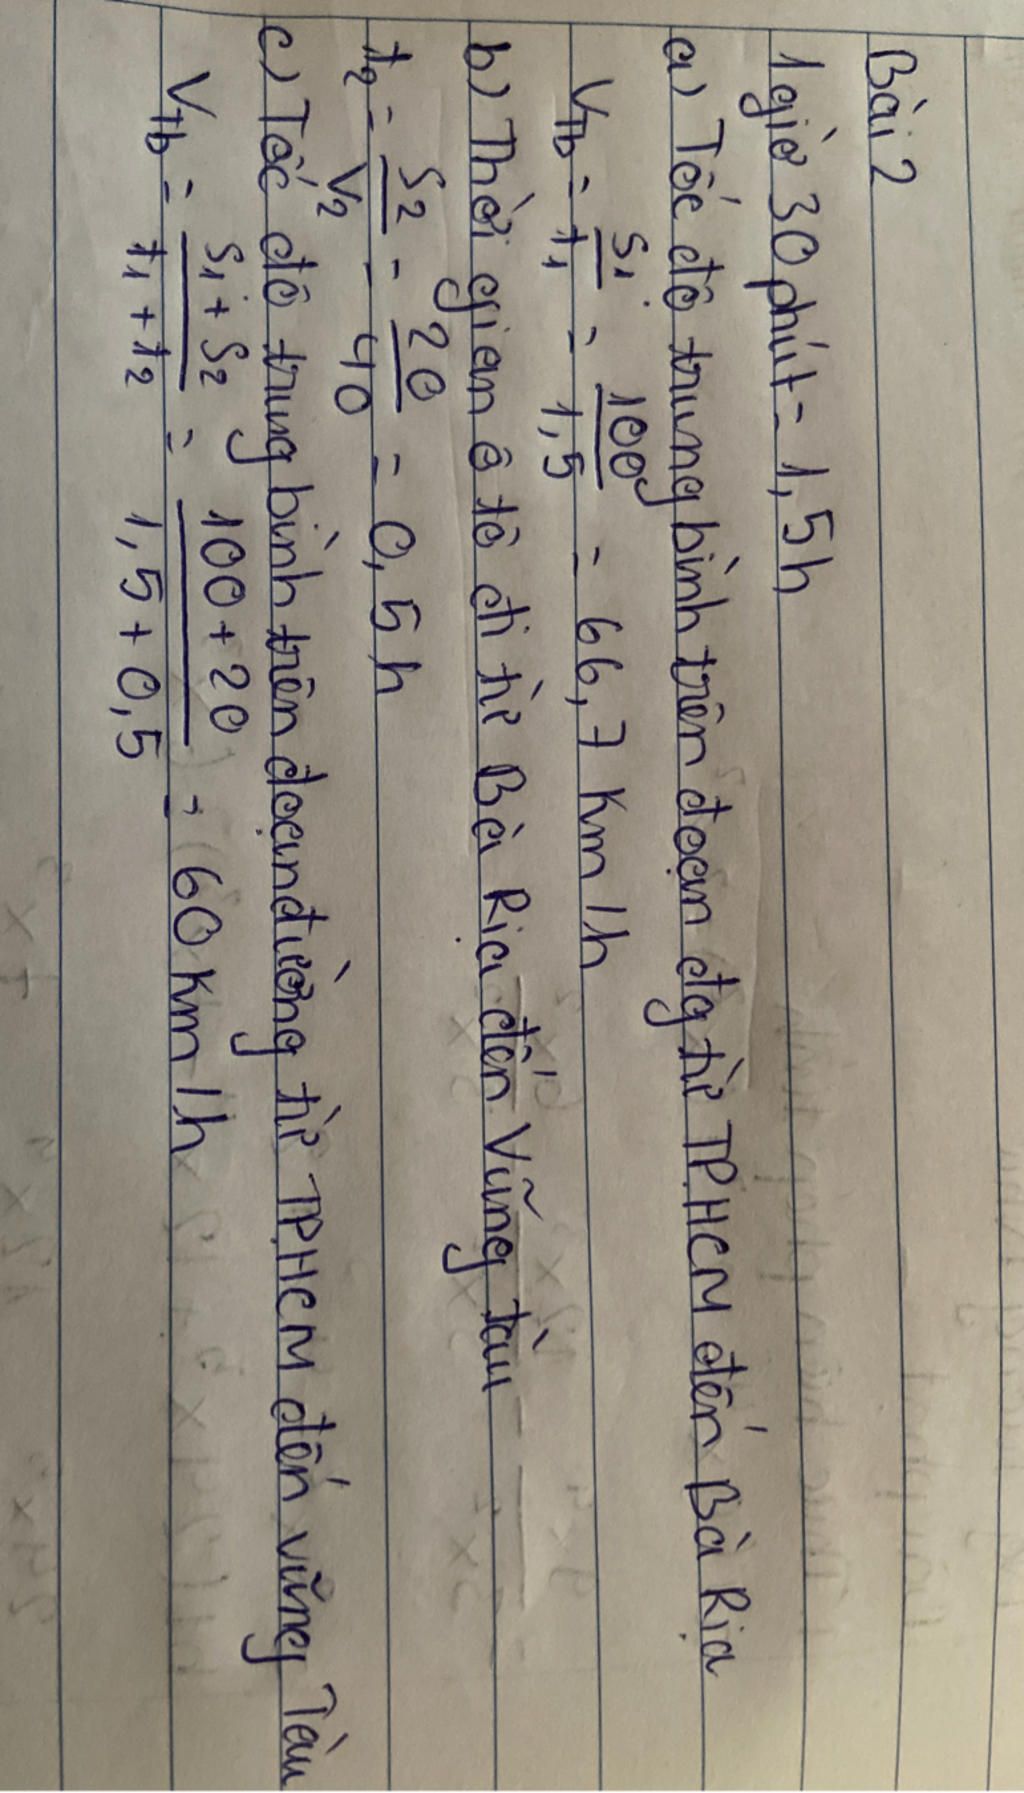 Bài 2
1 giờ 30 phút = 1,5h
a) Tốc độ trung bình trên đoạn đg từ TP.HCM đến Bà Rịa
VTb = S1/t1 = 100/1,5 = 66,7 Km/h
b) Thời gian ô tô đi từ Bà Rịa đến Vũng Tàu
t2 = S2/V2 = 20/40 = 0,5h
c) Tốc độ trung bình trên đoạn đường từ TP.HCM đến Vũng Tàu
VTb = S1 + S2/t1 + t2 = 100 + 20/1,5 + 0,5 = 60 Km/h